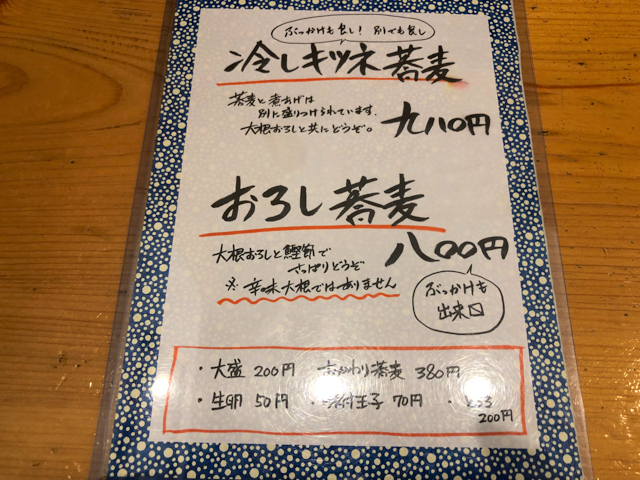 ぶっかけも良し! 別でも良し
冷しキツネ蕎麦
蕎麦と煮あげは
別に盛りつけられています。
大根おろしと共にどうぞ。
九八〇円
おろし蕎麦
大根おろしと鰹節で
さっぱりどうぞ
八〇〇円
※辛味大根ではありません
ぶっかけも
出来〼
・大盛 200円 おかわり蕎麦 380円
・生卵 50円 ・味付玉子 70円 ・とろろ
200円